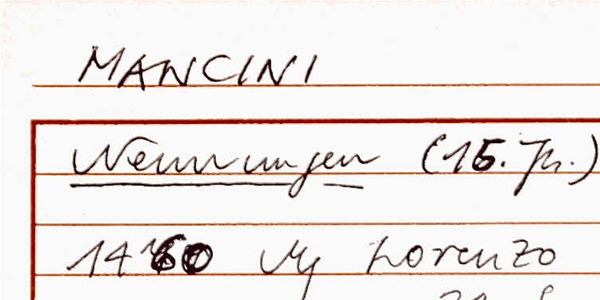 MANCINI
Nennungen (15. Jh.)
1460 Lorenzo